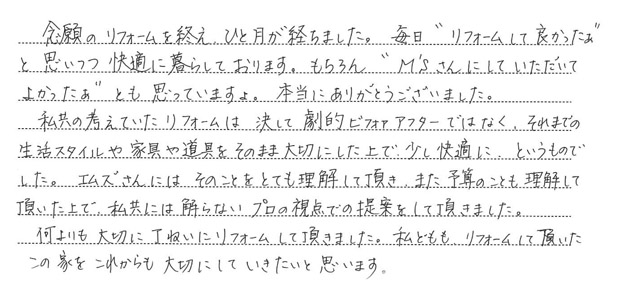 念願のリフォームを終え、ひと月が経ちました。毎日“リフォームして良かったぁ”
と思いつつ快適に暮らしております。もちろん“M'Sさんにしていただいて
よかったぁ”とも思っていますよ。本当にありがとうございました。
私共の考えていたリフォームは決して劇的ビフォアアフターではなく、それまでの
生活スタイルや家具や道具をそのまま大切にした上で、少し快適に、というもので
した。エムズさんにはそのことをとても理解して頂き、また予算のことも理解して
頂いた上で、私共には解らないプロの視点での提案をして頂きました。
何よりも大切に丁ねいにリフォームして頂きました。私どももリフォームして頂いた
この家をこれからも大切にしていきたいと思います。